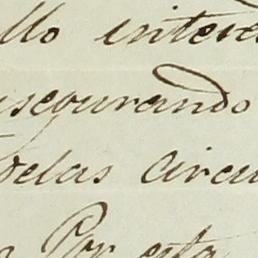 llo interes
asegurando
delas circu
Por esta